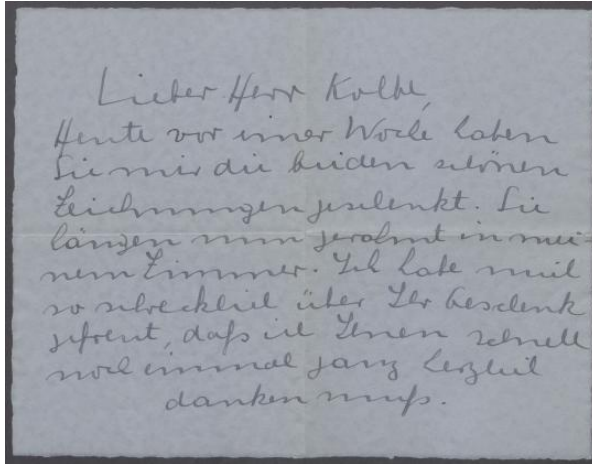 Lieber Herr Kolbe,
Heute vor einer Woche haben
Sie mir die beiden schönen
Zeichnungen geschenkt. Sie
hängen nun gerahmt in mei-
nem Zimmer. Ich habe mich
so schrecklich über Ihr Geschenk
gefreut, daß ich Ihnen schnell
noch einmal ganz herzlich
danken muß.